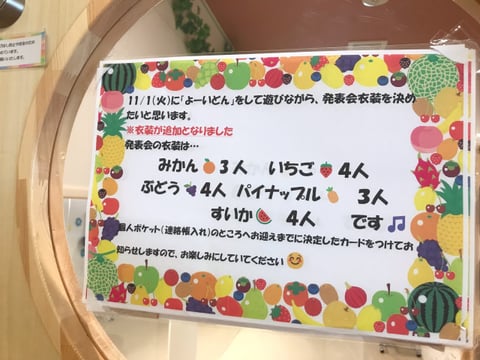 11/1(火)に「よーいどん」をして遊びながら、発表会衣装を決め
たいと思います。
※衣装が追加となりました
発表会の衣装は…
みかん🍊3人 いちご🍓4人
ぶどう🍇4人 パイナップル🍍 3人
すいか🍉 4人 です🎵
個人ポケット(連絡帳入れ)のところへお迎えまでに決定したカードをつけてお
知らせしますので、お楽しみにしていてください😊